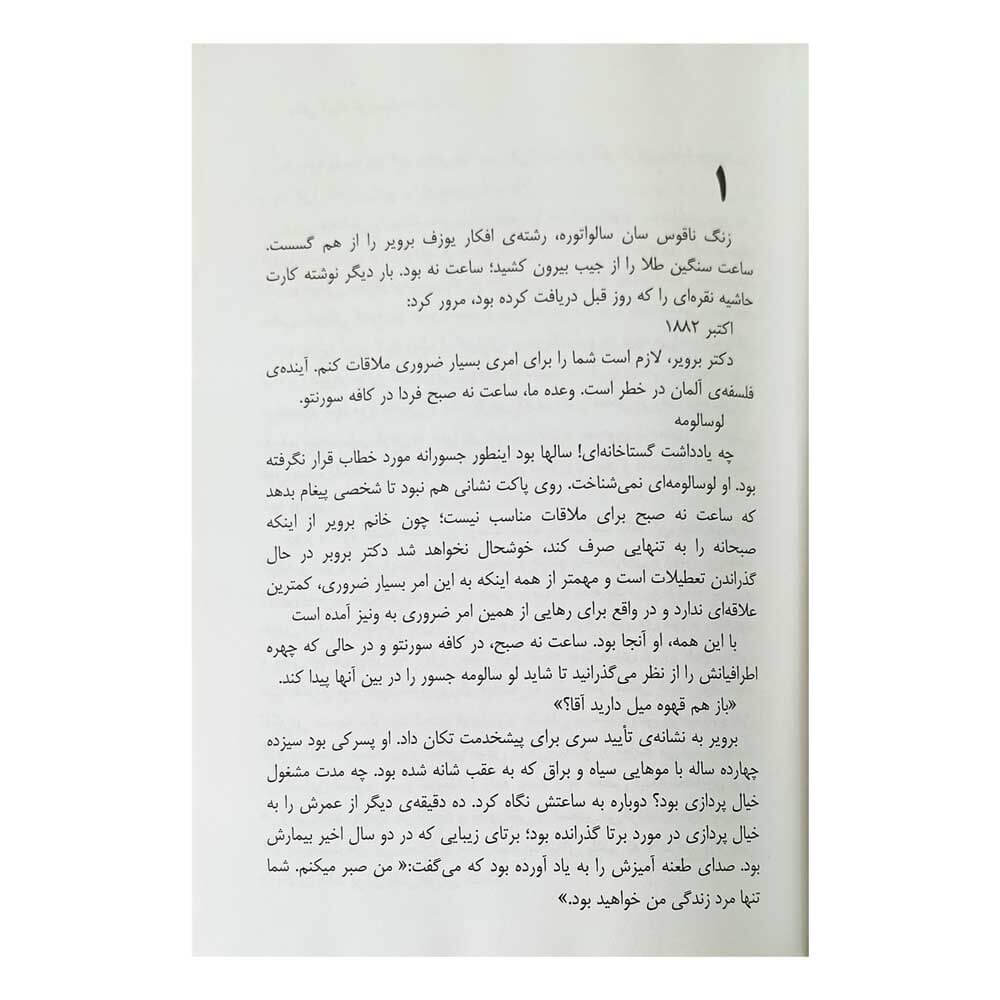 ۱
زنگ ناقوس سان سالواتوره، رشته‌ی افکار یوزف برویر را از هم گسست.
ساعت سنگین طلا را از جیب بیرون کشید؛ ساعت نه بود. بار دیگر نوشته کارت
حاشیه نقره‌ای را که روز قبل دریافت کرده بود، مرور کرد:
اکتبر ۱۸۸۲
دکتر برویر، لازم است شما را برای امری بسیار ضروری ملاقات کنم. آینده‌ی
فلسفه‌ی آلمان در خطر است. وعده ما، ساعت نه صبح فردا در کافه سورنتو.
لوسالومه
چه یادداشت گستاخانه‌ای! سالها بود اینطور جسورانه مورد خطاب قرار نگرفته
بود. او لوسالومه‌ای نمی‌شناخت. روی پاکت نشانی هم نبود تا شخصی پیغام بدهد
که ساعت نه صبح برای ملاقات مناسب نیست؛ چون خانم برویر از اینکه
صبحانه را به تنهایی صرف کند، خوشحال نخواهد شد دکتر برویر در حال
گذراندن تعطیلات است و مهمتر از همه اینکه به این امر بسیار ضروری، کمترین
علاقه‌ای ندارد و در واقع برای رهایی از همین امر ضروری به ونیز آمده است
با این همه، او آنجا بود. ساعت نه صبح، در کافه سورنتو و در حالی که چهره
اطرافیانش را از نظر می‌گذرانید تا شاید لو سالومه جسور را در بین آنها پیدا کند.
«باز هم قهوه میل دارید آقا؟»
برویر به نشانه‌ی تأیید سری برای پیشخدمت تکان داد. او پسرکی بود سیزده
چهارده ساله با موهایی سیاه و براق که به عقب شانه شده بود. چه مدت مشغول
خیال پردازی بود؟ دوباره به ساعتش نگاه کرد. ده دقیقه‌ی دیگر از عمرش را به
خیال پردازی در مورد برتا گذرانده بود؛ برتای زیبایی که در دو سال اخیر بیمارش
بود. صدای طعنه آمیزش را به یاد آورده بود که می‌گفت:« من صبر میکنم. شما
تنها مرد زندگی من خواهید بود.»